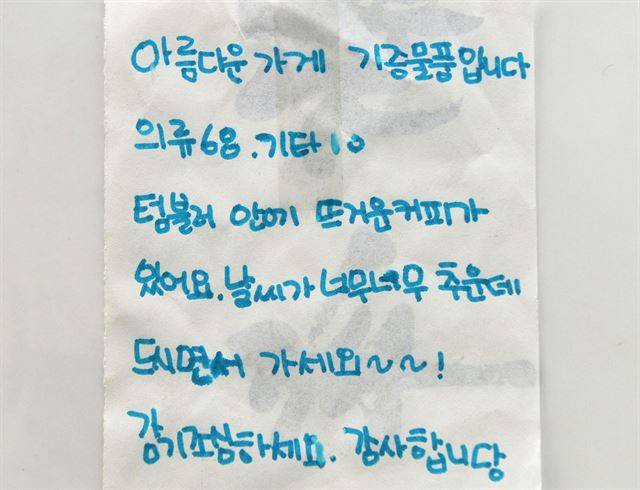 아름다운가게 기증물품입니다
의류68.기타10
텀블러 안에 뜨거운커피가
있어요. 날씨가 너무너무 추운데
드시면서 가세요~~!
감기조심하세요. 감사합니당